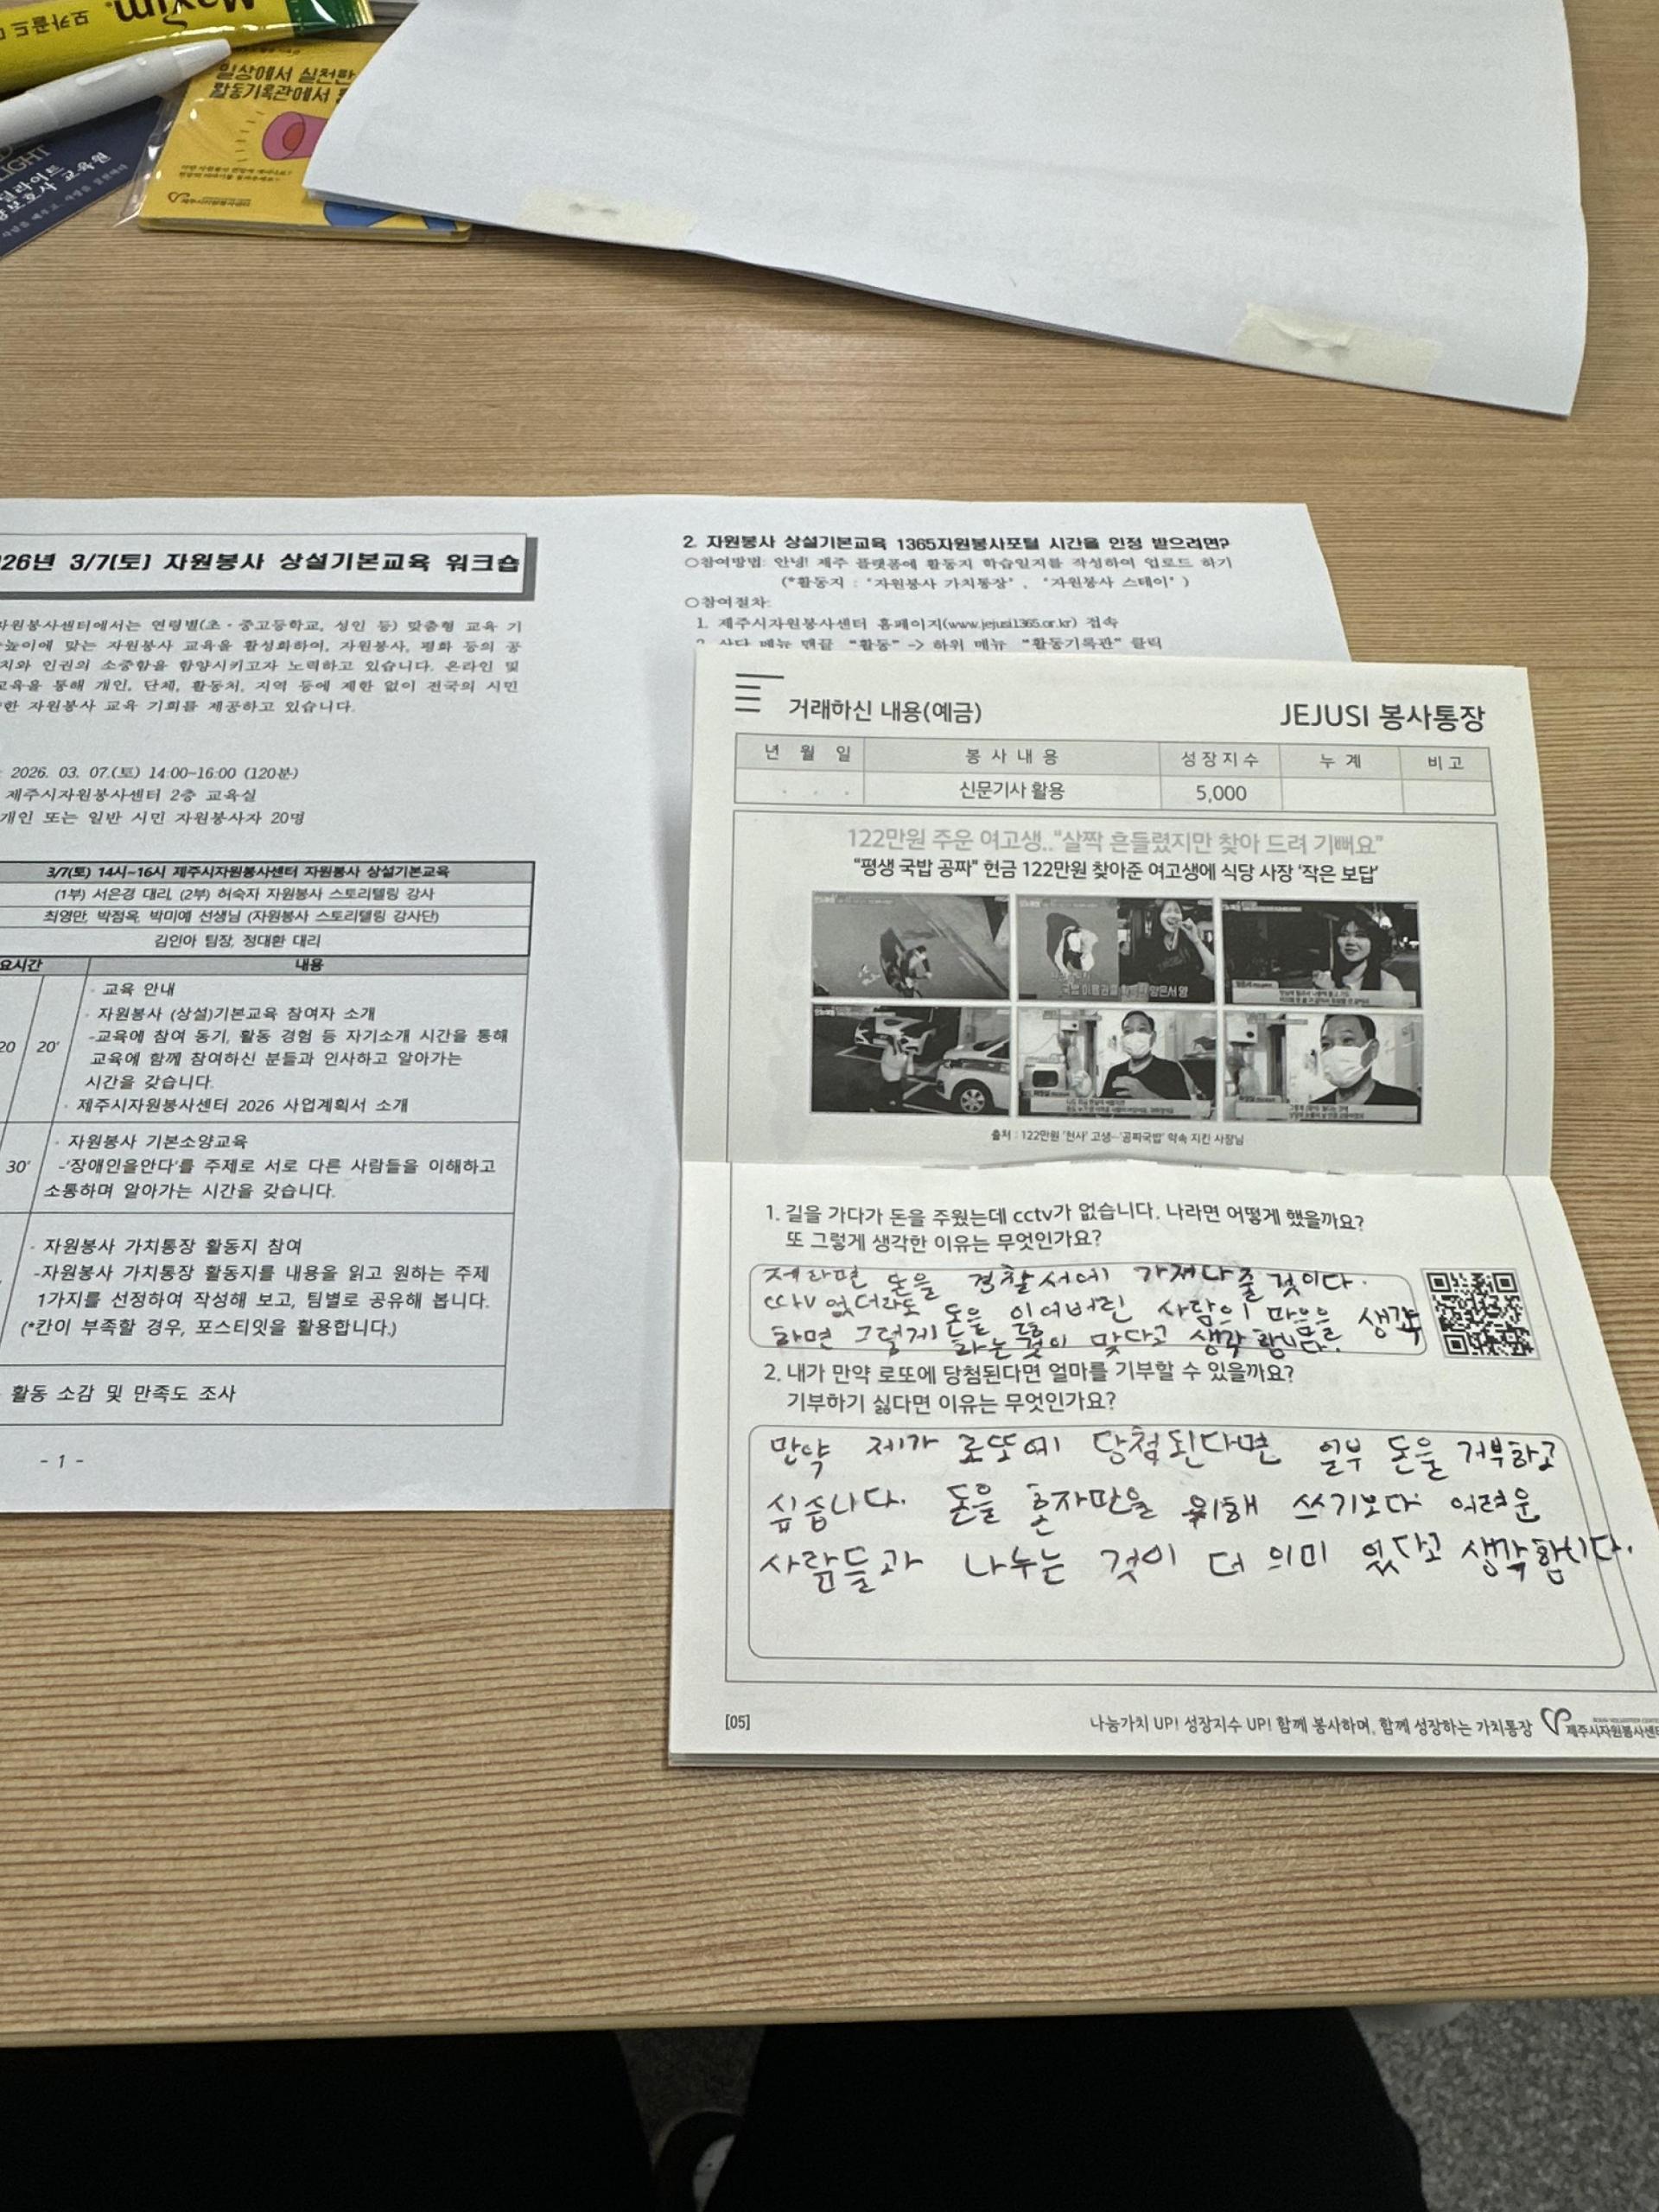 Maxim.
모카골드
일상에서 실천한
활동기록관에서
제주시자원봉사센터
LIGHT
교육원
26년 3/7(토) 자원봉사 상설기본교육 워크숍
자원봉사센터에서는 연령별(초·중고등학교, 성인 등) 맞춤형 교육 기
높이에 맞는 자원봉사 교육을 활성화하여, 자원봉사, 평화 등의 공
치와 인권의 소중함을 함양시키고자 노력하고 있습니다. 온라인 및
교육을 통해 개인, 단체, 활동처, 지역 등에 제한 없이 전국의 시민
한 자원봉사 교육 기회를 제공하고 있습니다.
: 2026. 03. 07.(토) 14:00~16:00 (120분)
제주시자원봉사센터 2층 교육실
개인 또는 일반 시민 자원봉사자 20명
3/7(토) 14시~16시 제주시자원봉사센터 자원봉사 상설기본교육
(1부) 서은경 대리, (2부) 허숙자 자원봉사 스토리텔링 강사
최영만, 박점옥, 박미예 선생님 (자원봉사 스토리텔링 강사단)
김인아 팀장, 정대환 대리
요시간 내용
20 20'
· 교육 안내
· 자원봉사 (상설)기본교육 참여자 소개
-교육에 참여 동기, 활동 경험 등 자기소개 시간을 통해
교육에 함께 참여하신 분들과 인사하고 알아가는
시간을 갖습니다.
· 제주시자원봉사센터 2026 사업계획서 소개
30'
· 자원봉사 기본소양교육
-'장애인을안다'를 주제로 서로 다른 사람들을 이해하고
소통하며 알아가는 시간을 갖습니다.
· 자원봉사 가치통장 활동지 참여
-자원봉사 가치통장 활동지를 내용을 읽고 원하는 주제
1가지를 선정하여 작성해 보고, 팀별로 공유해 봅니다.
(*칸이 부족할 경우, 포스티잇을 활용합니다.)
활동 소감 및 만족도 조사
- 1 -
2. 자원봉사 상설기본교육 1365자원봉사포털 시간을 인정 받으려면?
○참여방법: 안녕! 제주 플랫폼에 활동지 학습일지를 작성하여 업로드 하기
(*활동지 : "자원봉사 가치통장", "자원봉사 스테이")
○참여절차:
1. 제주시자원봉사센터 홈페이지(www.jejusi1365.or.kr) 접속
2. 상단 메뉴 맨끝 "활동" -> 하위 메뉴 "활동기록관" 클릭
거래하신 내용(예금) JEJUSI 봉사통장
년 월 일 봉사내용 성장지수 누계 비고
. . . 신문기사 활용 5,000
122만원 주운 여고생.."살짝 흔들렸지만 찾아 드려 기뻐요"
"평생 국밥 공짜" 현금 122만원 찾아준 여고생에 식당 사장 '작은 보답'
출처 : 122만원 '천사' 고생…'공짜국밥' 약속 지킨 사장님
1. 길을 가다가 돈을 주웠는데 cctv가 없습니다. 나라면 어떻게 했을까요?
또 그렇게 생각한 이유는 무엇인가요?
저라면 돈을 경찰서에 가져다줄 것이다.
cctv 없더라도 돈을 잃어버린 사람의 마음을 생각
하면 그렇게 하는 것이 맞다고 생각합니다.
2. 내가 만약 로또에 당첨된다면 얼마를 기부할 수 있을까요?
기부하기 싫다면 이유는 무엇인가요?
만약 제가 로또에 당첨된다면 일부 돈을 거부하고
싶습니다. 돈을 혼자만을 위해 쓰기보다 어려운
사람들과 나누는 것이 더 의미 있다고 생각합니다.
[05]
나눔가치 UP! 성장지수 UP! 함께 봉사하며, 함께 성장하는 가치통장 제주시자원봉사센터